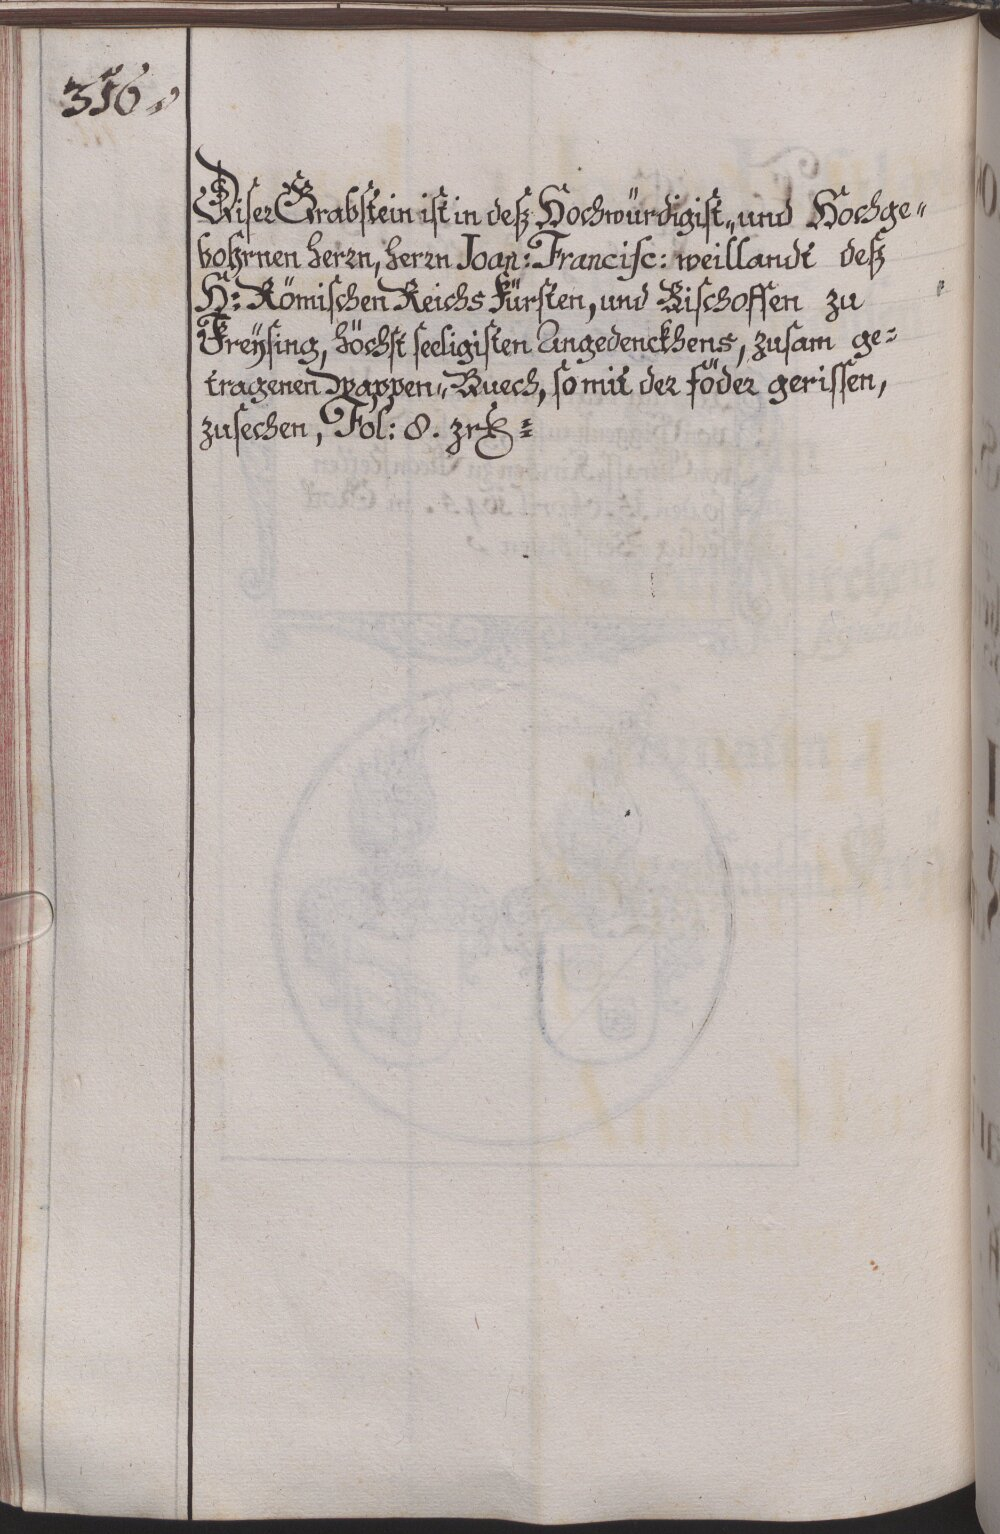 316.
Diser Grabstein ist in deß Hochwürdigist,, und Hochge„
bohrnen herrn, herrn Joan: Francisc: weillandt deß
H: Römischen Reichs Fürsten, und Bischoffen zu
Freÿsing, höchst seeligisten Angedenckhens, zusam ge=
tragenen Wappen,, Buech, so mit der föder gerissen,
zusechen, Fol: 8.